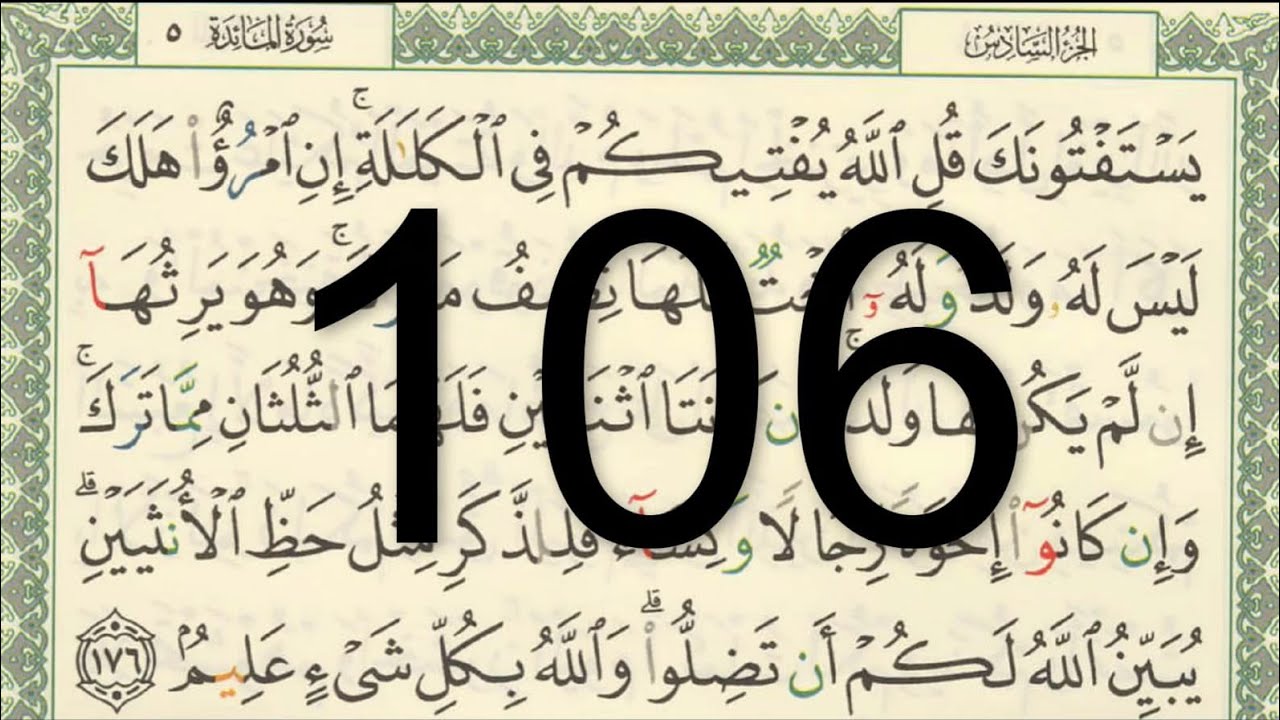 الجُزْءُ السَّادِسُ
سُورَةُ المَائِدَةِ ٥
يَسْتَفْتُونَكَ قُلِ ٱللَّهُ يُفْتِيكُمْ فِى ٱلْكَلَٰلَةِ ۚ إِنِ ٱمْرُؤٌا۟ هَلَكَ
لَيْسَ لَهُۥ وَلَدٌ وَلَهُۥٓ أُخْتٌ فَلَهَا نِصْفُ مَا تَرَكَ ۚ وَهُوَ يَرِثُهَآ
إِن لَّمْ يَكُن لَّهَا وَلَدٌ ۚ فَإِن كَانَتَا ٱثْنَتَيْنِ فَلَهُمَا ٱلثُّلُثَانِ مِمَّا تَرَكَ ۚ
وَإِن كَانُوٓا۟ إِخْوَةً رِّجَالًا وَنِسَآءً فَلِلذَّكَرِ مِثْلُ حَظِّ ٱلْأُنثَيَيْنِ ۗ
يُبَيِّنُ ٱللَّهُ لَكُمْ أَن تَضِلُّوا۟ ۗ وَٱللَّهُ بِكُلِّ شَىْءٍ عَلِيمٌۢ ١٧٦
106